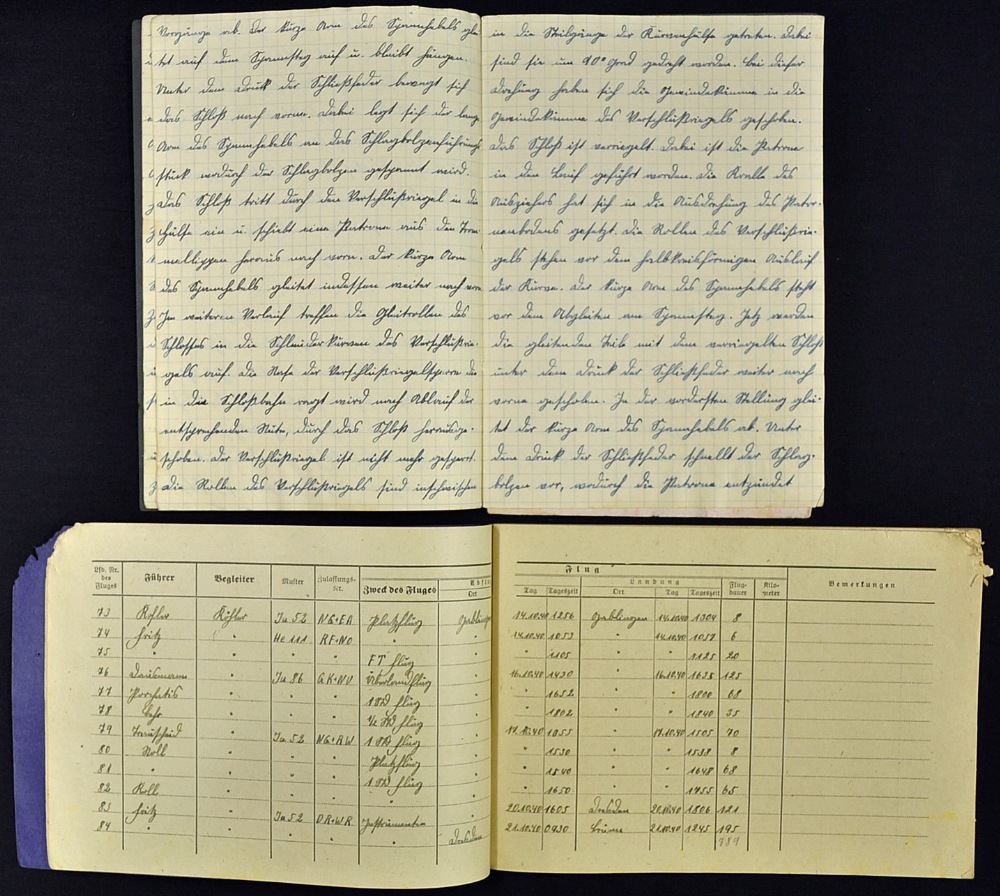 Vorgänge ab. Der kurze Arm des Spannhebels glei-
tet auf dem Spannsteg auf u. bleibt hängen.
Unter dem Druck der Schließfeder bewegt sich
das Schloß nach vorne. Dabei legt sich der lange
Arm des Spannhebels an das Schlagbolzenführungs
stück wodurch der Schlagbolzen gespannt wird.
Das Schloß tritt durch den Verschlußriegel in die
Hülse ein u. schiebt eine Patrone aus den Trom
mellippen heraus nach vorn. Der kurze Arm
des Spannhebels gleitet indessen weiter nach vorn
Im weiteren Verlauf treffen die Gleitrollen des
Schlosses in die Schleuderkurven des Verschlußrie-
gels auf. Die Nase der Verschlußriegelsperre die
in die Schloßbahn ragt wird nach Ablauf der
entsprechenden Nute, durch das Schloß herausge-
schoben. Der Verschlußriegel ist nicht mehr gesperrt.
Die Rollen des Verschlußriegels sind inzwischen
in die Steilgänge der Kurvenhülse getreten. Dabei
sind sie um 90° Grad gedreht worden. Bei dieser
Drehung haben sich die Gewindekämme in die
Gewindekämme des Verschlußriegels geschoben.
Das Schloß ist verriegelt. Dabei ist die Patrone
in den Lauf geführt worden. Die Kralle des
Ausziehers hat sich in die Ausdrehung des Patro-
nenbodens gesetzt. Die Rollen des Verschlußrie-
gels stehen vor dem halbkreisförmigen Auslauf
der Kurve. Der kurze Arm des Spannhebels steht
vor dem Abgleiten am Spannsteg. Jetz werden
die gleitenden Teile mit dem verriegelten Schloß
unter dem Druck der Schließfeder weiter nach
vorne geschoben. In der vordersten Stellung glei-
tet der kurze Arm des Spannhebels ab. Unter
dem Druck der Schließfeder schnellt der Schlag-
bolzen vor, wodurch die Patrone entzündet
Lfd. Nr. des Fluges Führer Begleiter Muster Zulassungs-Nr. Zweck des Fluges Ort
73 Köhler Ju 52 NG+EA Platzflug Gablingen
74 Fritz " He 111 RF+NO " "
75 " " " " FT Flug "
76 " Ju 86 GK+NV Überlandflug "
77 " " " "
78 " " " "
79 " Ju 52 NG+RW "
80 Noll " " " Platzflug "
81 " " " " "
82 " " " " "
83 Fritz " Ju 52 DR+WR "
84 " " " " " Dresden
Flug
Landung
Tag Tageszeit Ort Tag Tageszeit Flug-dauer Kilo-meter Bemerkungen
14.10.40 1256 Gablingen 14.10.40 1304 8
14.10.40 1053 " 14.10.40 1057 6
" 1105 " " 1125 20
16.10.40 1430 " 16.10.40 1635 125
" 1652 " " 1800 68
" 1802 " " 1840 35
17.10.40 1355 " 17.10.40 1505 70
" 1530 " " 1538 8
" 1540 " " 1648 68
" 1650 " " 1755 65
20.10.40 1605 Dresden 20.10.40 1806 121
21.10.40 0930 Brünn 21.10.40 1245 195
789